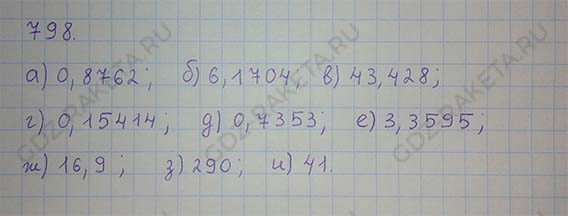 798.
а) 0,8762; б) 6,1704, в) 43,428;
г) 0,15414; д) 0,7353; е) 3,3595;
ж) 16,9; з) 290; и) 41.
GDZ-RAKETA.RU
GDZ-RAKETA.RU
GDZ-RAKETA.RU
GDZ-RAKETA.RU